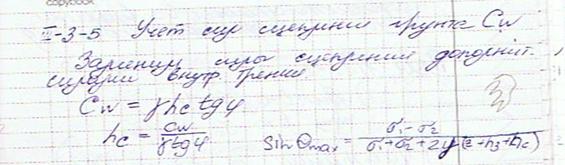 copybook
III-3-5 Учет сил сцепления грунта Cw
Заменим силы сцепления дополнит.
силами внутр. трения
Cw = γhc tgφ
hc = Cw/γtgφ sinΘmax = σ1-σ2/σ1+σ2+2γ(z+hз+hc)